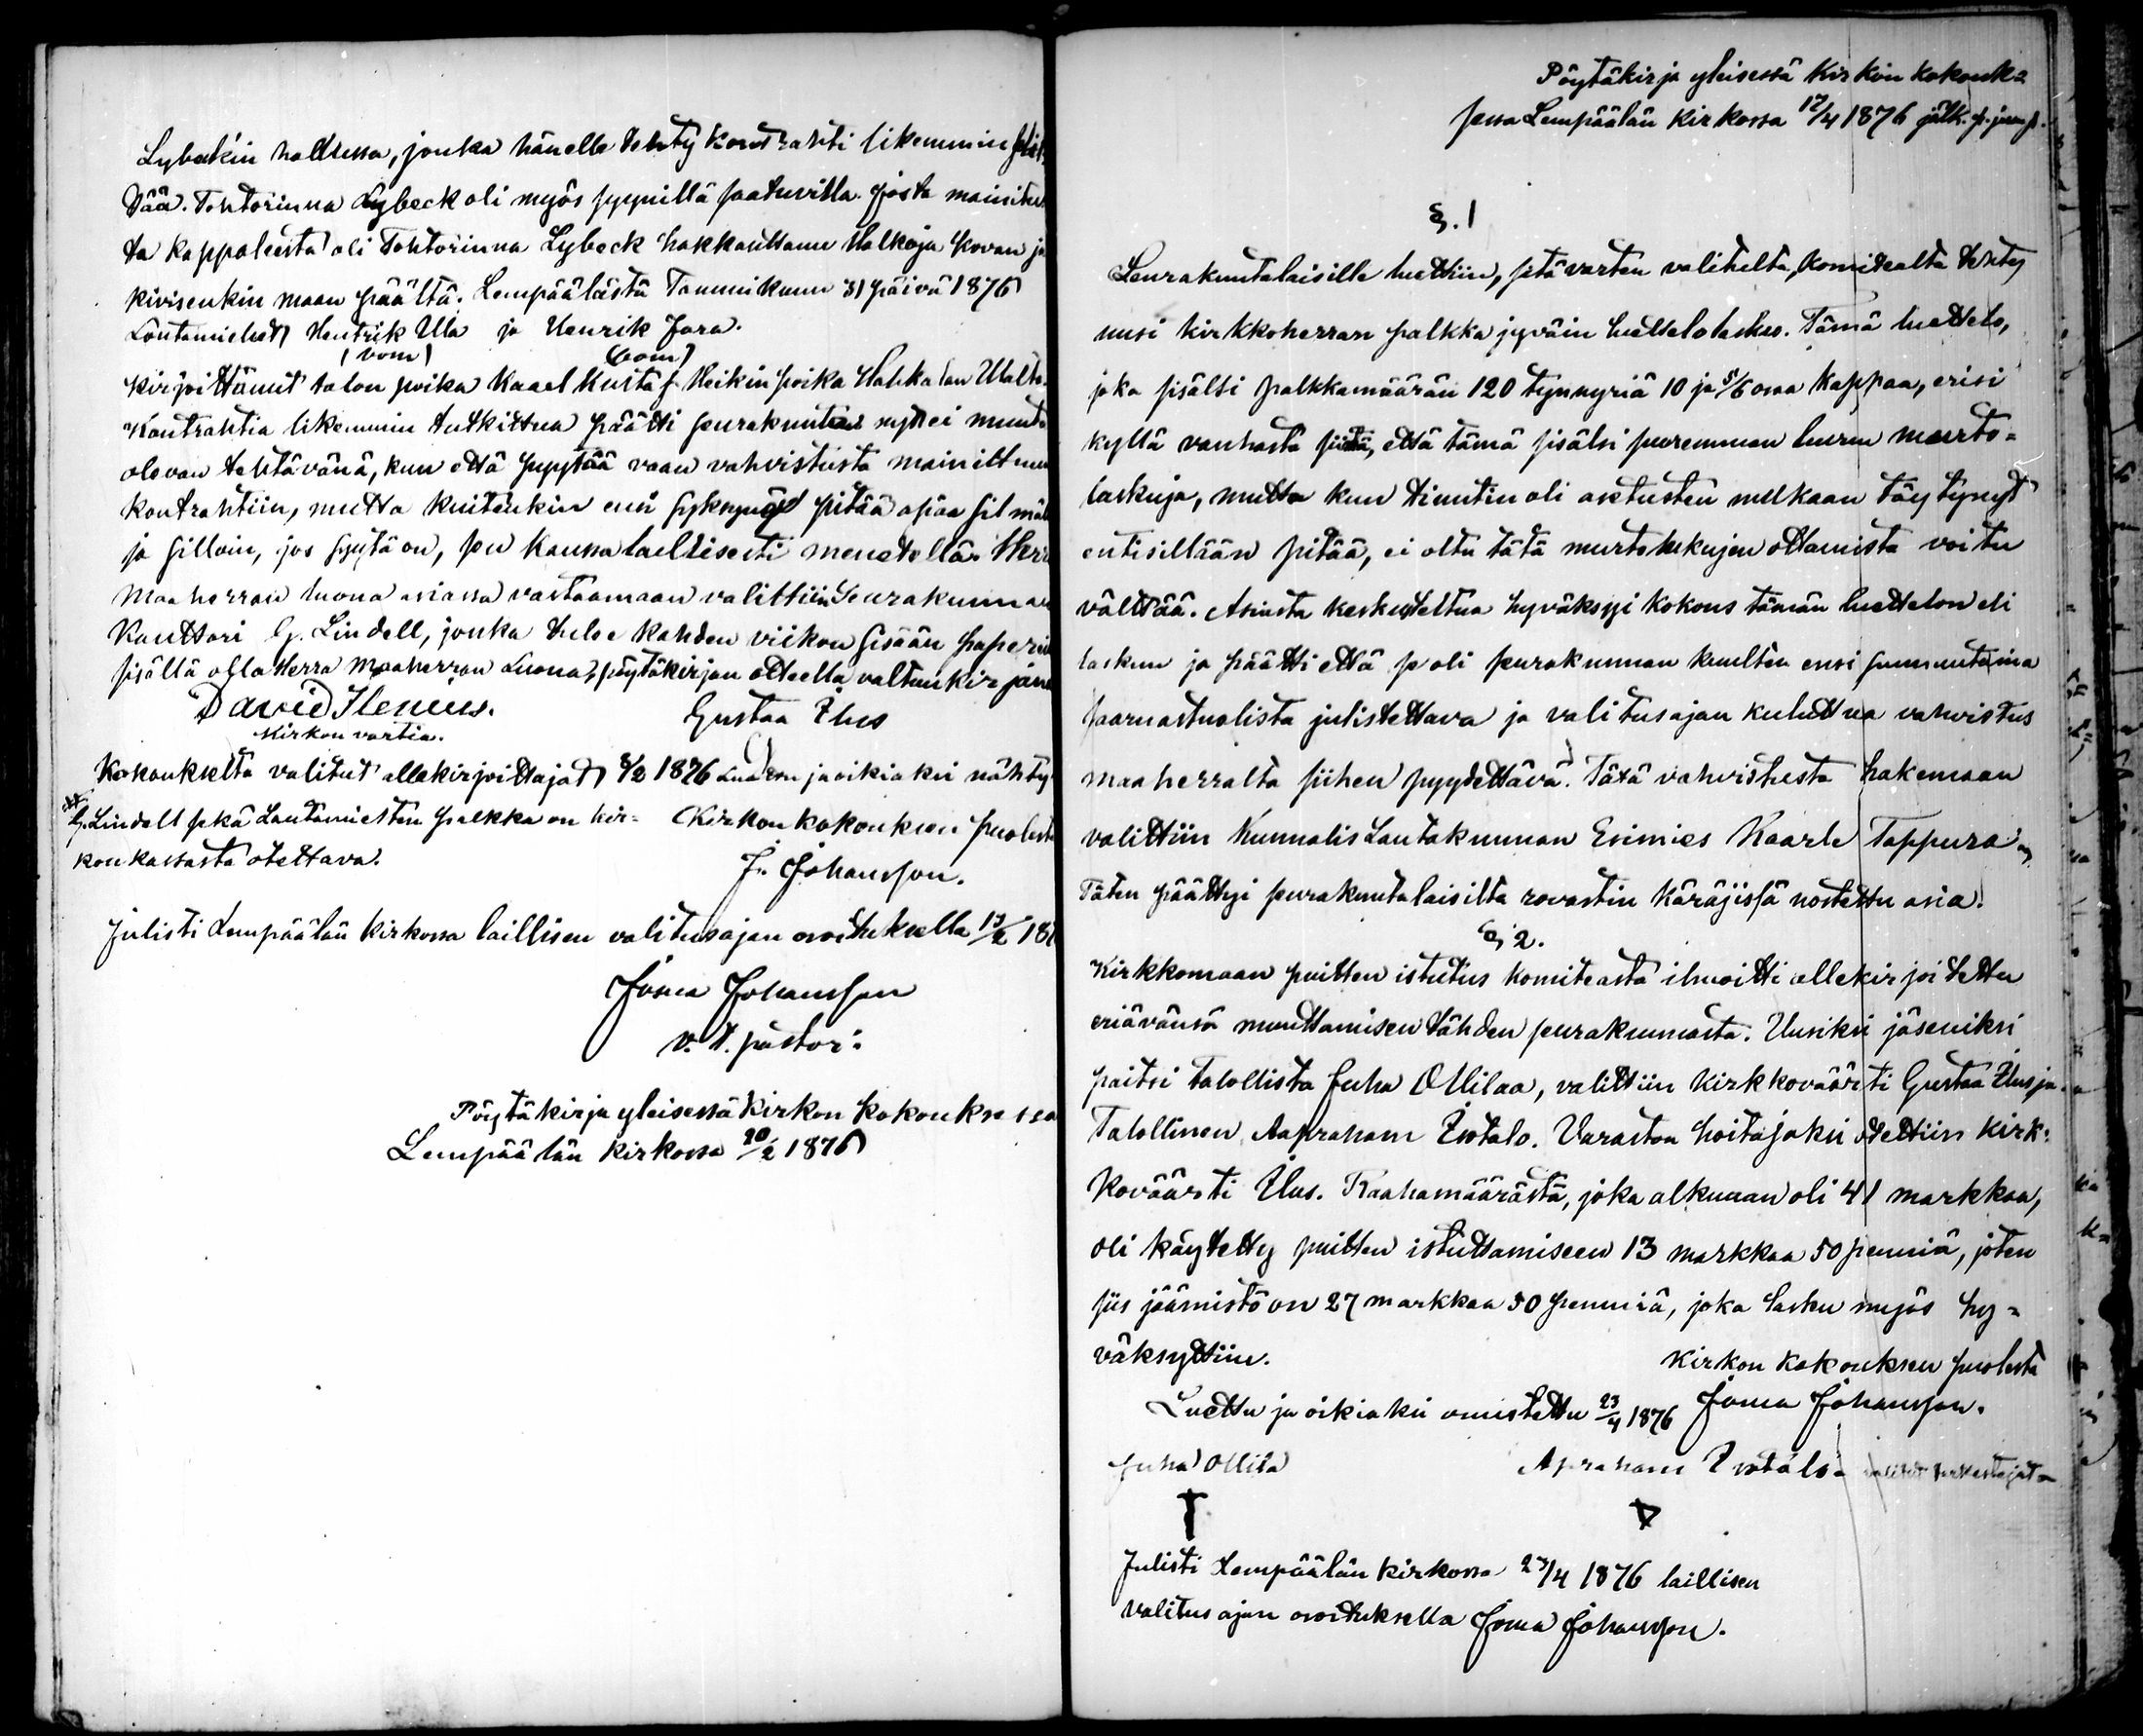 Lybeckin hallussa, jonka hänelle tehty kontrahti likemmin selit=
tää. Tohtorinna Lybeck oli myös syynillä saatuvilla. Josta mainitus=
ta kappaleesta oli Tohtorinna Lybeck hakkauttanu Halkoja kovan ja
kivisenkin maan päältä. Lempäälästä Tammikuun 31 päivä 1876
Lautamiehet Hentrik Ula ja Henrik Jara.
(bom) (bom)
kirjoittanut talon poika Kaael Kustaf Heikin poika Hahkalan Ulalta.
Kontrahtia likemmin tutkittua päätti seurakunta nyt ei muuta
olevan tehtävänä, kun että pyytää vaan vahvistusta mainittuun
kontrahtiin, mutta kuitenkin ensi syksynä pitää asiaa silmäl
ja silloin, jos syytä on, sen kanssa laillisesti menetellä. Herra
Maaherran luona asiassa vastaamaan valittiin Seurakunnan
Kanttori G. Lindell, jonka tulee kahden viikon sisään paperin
sisällä olla Herra Maaherran luona, pöytäkirjan otteella valtuukirjana
David Ilenius. Gustaa Ilus
Kirkon vartia.
Kokoukselta valitut allekirjoittajat 8/2 1876 Luettu ja oikiaksi nähty
G. Lindell sekä Lautamiesten palkka on kir= Kirkon kokouksen puolesta
kon kassasta otettava. J. Johansson.
Julisti Lempäälän kirkossa laillisen valitusajan osoituksella 13/2 187
Josua Johansson
v. t. pastor:
Pöytäkirja yleisessä Kirkon kokouksessa
Lempäälän kirkossa 20/2 1876
Pöytäkirja yleisessä Kirkon kokouk=
sessa Lempäälän kirkossa 17/4 1876 jälk.
§. 1
Seurakuntalaisille luettiin, sitä varten valitulta, komitealta tehty
uusi kirkkoherran palkka jyväin luettelo lasku. Tämä luettelo,
joka sisälsi palkkamäärän 120 tynnyriä 10 ja 5/6 osaa kappaa, erisi
kyllä vanhasta siitä, että tämä sisälsi suuremman luvun murto=
laskuja, mutta kun tiiuntin oli asetusten mukaan täytynyt
entisillään pitää, ei oltu tätä murtolukujen ottamista voitu
välttää. Asiasta keskusteltua hyväksyi kokous tämän luettelon eli
laskun ja päätti että se oli seurakunnan kuulten ensi sunnuntaina
saarnastuolista julistettava ja valitusajan kuluttua vahvistus
maaherralta siihen pyydettävä. Tätä vahvistusta hakemaan
valittiin Kunnalis Lautakunnan Esimies Kaarle Tappura
Täten päättyi seurakuntalaisilta rovastin käräjissä nostettu asia.
§ 2.
Kirkkomaan puitten istutus komiteasta ilmoitti allekirjoitettu
eriävänsä muuttamisen tähden seurakunnasta. Uusiksi jäseniksi
paitsi talollista Juha Ollilaa, valittiin kirkkoväärti Gustaa Ilus ja
Talollinen Aapraham Isotalo. Varaston hoitajaksi otettiin kirk=
koväärti Ilus. Raahamäärästä, joka alkuaan oli 41 markkaa,
oli käytetty puitten istuttamiseen 13 markkaa 50 penniä, joten
siis jäämistö on 27 markkaa 50 penniä, joka lasku myös hy=
väksyttiin. Kirkon kokouksen puolesta
Luettu ja oikiaksi omistettu 23/4 1876 Josua Johansson.
Juha Ollila Apraham Isotalo valitut tarkastajat
Julisti Lempäälän kirkossa 23/4 1876 laillisen
valitus ajan osoituksella Josua Johansson.